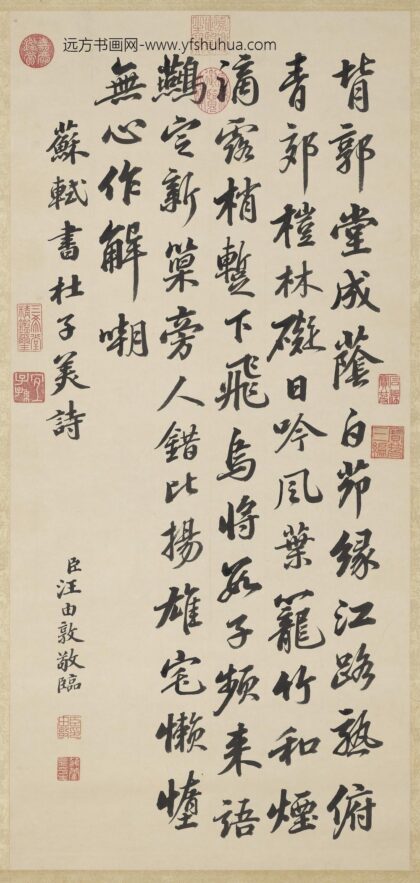 远方书画网-www.yfshuhua.com
背郭堂成蔭白茆緣江路熟俯
青郊榿林礙日吟風葉籠竹和煙
滴露梢暫下飛烏將數子頻來語
鷰定新巢旁人錯比揚雄宅懶惰
無心作解嘲
蘇軾書杜子美詩
臣汪由敦敬臨
三希堂精鑑璽
宜子孫